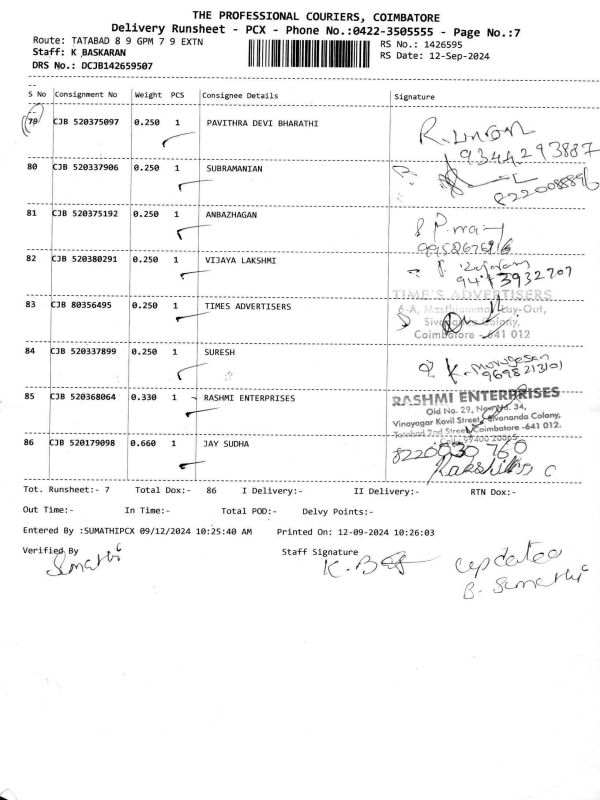 THE PROFESSIONAL COURIERS, COIMBATORE
Delivery Runsheet - PCX - Phone No.:0422-3505555 - Page No.:7
Route: TATABAD 8 9 GPM 7 9 EXTN
RS No.: 1426595
Staff: K BASKARAN
RS Date: 12-Sep-2024
DRS No.: DCJB142659507
S No Consignment No Weight PCS Consignee Details Signature
79 CJB 520375097 0.250 1 PAVITHRA DEVI BHARATHI
9344293887
80 CJB 520337906 0.250 1 SUBRAMANIAN
81 CJB 520375192 0.250 1 ANBAZHAGAN
82 CJB 520380291 0.250 1 VIJAYA LAKSHMI
83 CJB 80356495 0.250 1 TIMES ADVERTISERS
TIME'S ADVERTISERS
Coimbatore - 641 012
84 CJB 520337899 0.250 1 SURESH
K. Murugesan
9698213101
85 CJB 520368064 0.330 1 RASHMI ENTERPRISES
RASHMI ENTERPRISES
Old No. 29, New No. 34,
Vinayagar Kovil Street, Sivananda Colony,
Tatabad 2nd Street, Coimbatore -641 012.
86 CJB 520179098 0.660 1 JAY SUDHA
8220030 760
Tot. Runsheet:- 7 Total Dox:- 86 I Delivery:- II Delivery:- RTN Dox:-
Out Time:- In Time:- Total POD:- Delvy Points:-
Entered By :SUMATHIPCX 09/12/2024 10:25:40 AM Printed On: 12-09-2024 10:26:03
Verified By Staff Signature
Sumathi K. Bas updated
B. Sumathi